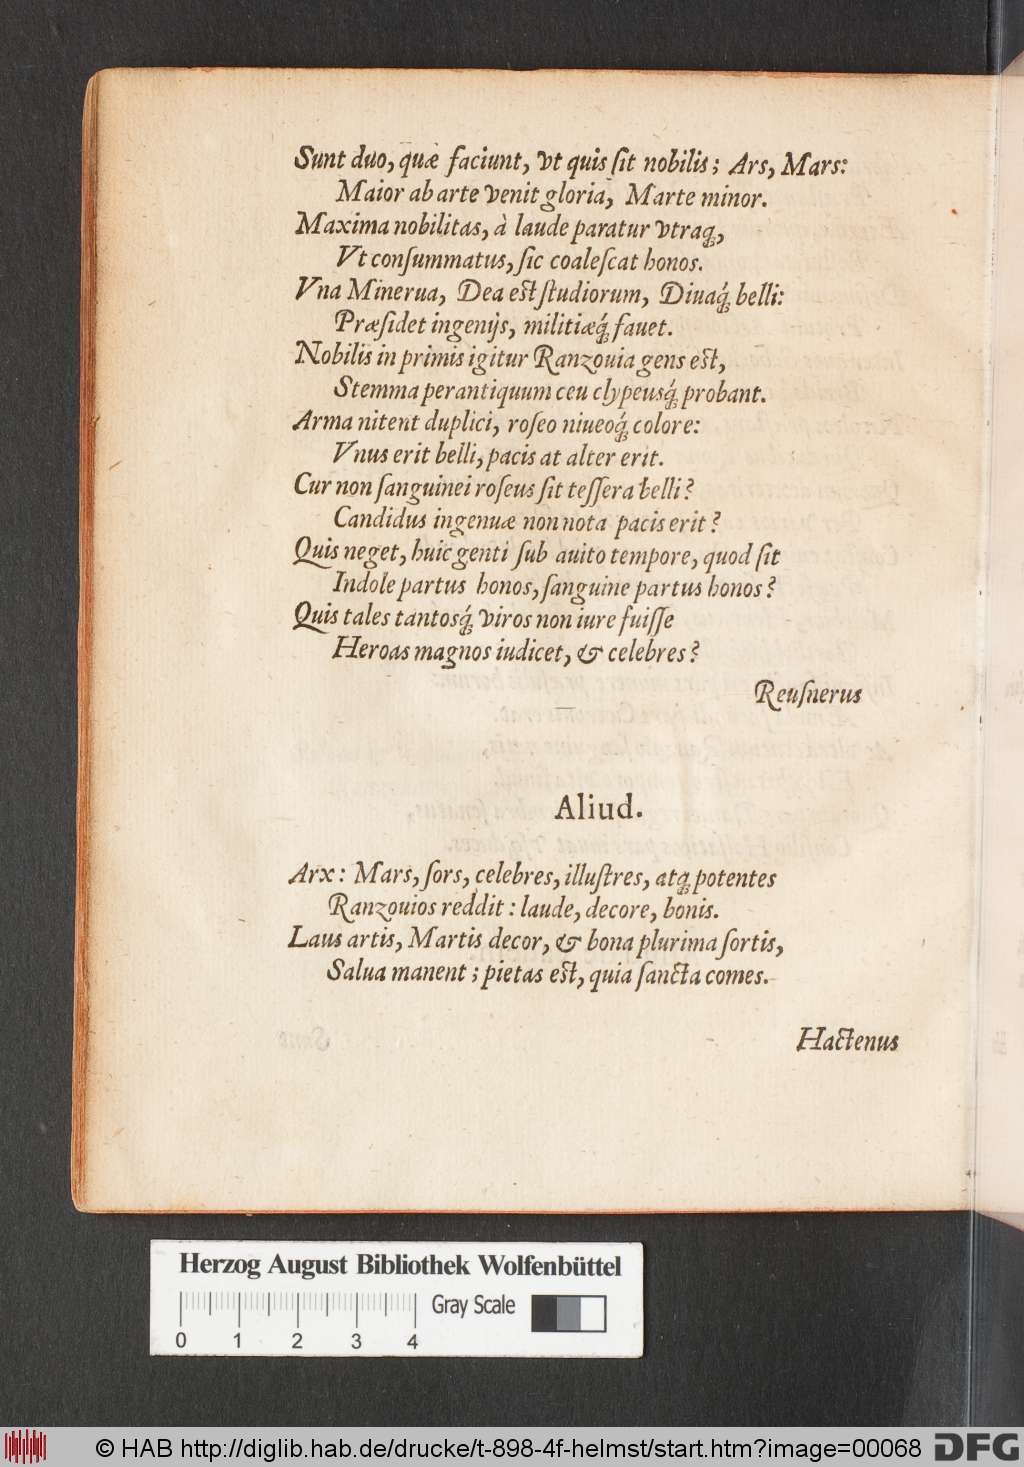 Sunt duo, quæ faciunt, vt quis ſit nobilis; Ars, Mars:
Maior ab arte venit gloria, Marte minor.
Maxima nobilitas, à laude paratur vtraq́,
Vt conſummatus, ſic coaleſcat honos.
Vna Minerua, Dea eſt ſtudiorum, Diuaq́ belli:
Præſidet ingenijs, militiæq́ fauet.
Nobilis in primis igitur Ranzouia gens eſt,
Stemma perantiquum ceu clypeusq́ probant.
Arma nitent duplici, roſeo niueoq́ colore:
Vnus erit belli, pacis at alter erit.
Cur non ſanguinei roſeus ſit teſſera belli?
Candidus ingenuæ non nota pacis erit?
Quis neget, huic genti ſub auito tempore, quod ſit
Indole partus honos, ſanguine partus honos?
Quis tales tantosq́ viros non iure fuiſſe
Heroas magnos iudicet, & celebres?
Reuſnerus
Aliud.
Arx: Mars, ſors, celebres, illuſtres, atq́ potentes
Ranzouios reddit: laude, decore, bonis.
Laus artis, Martis decor, & bona plurima ſortis,
Salua manent; pietas eſt, quia ſancta comes.
Hactenus
Herzog August Bibliothek Wolfenbüttel
Gray Scale
0 1 2 3 4
© HAB http://diglib.hab.de/drucke/t-898-4f-helmst/start.htm?image=00068
DFG